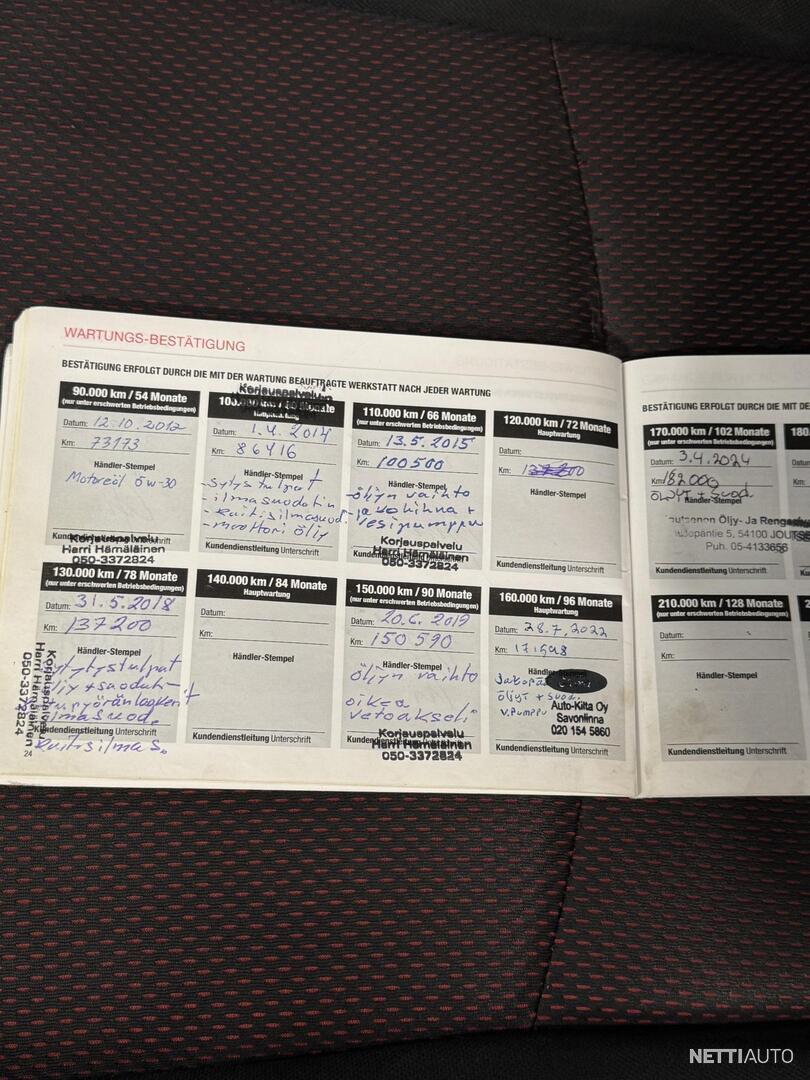 WARTUNGS-BESTÄTIGUNG
BESTÄTIGUNG ERFOLGT DURCH DIE MIT DER WARTUNG BEAUFTRAGTE WERKSTATT NACH JEDER WARTUNG
90.000 km / 54 Monate
(nur unter erschwerten Betriebsbedingungen)
Datum: 12.10.2012
Km: 73173
Händler-Stempel
Motoreöl 5w-30
Kundendienstleitung Unterschrift
Korjauspalvelu
Harri Hämäläinen
050-3372824
Korjauspalvelu
Monate
Hauptwartung
Datum: 1.4.2014
Km: 86416
Händler-Stempel
- sytystulpat
- ilmasuodatin
- raitisilmasuod.
- moottori öljy
Kundendienstleitung Unterschrift
110.000 km / 66 Monate
(nur unter erschwerten Betriebsbedingungen)
Datum: 13.5.2015
Km: 100500
Händler-Stempel
- öljyn vaihto
- jakohihna +
vesipumppu
Kundendienstleitung Unterschrift
Korjauspalvelu
Harri Hämäläinen
050-3372824
120.000 km / 72 Monate
Hauptwartung
Datum:
Km:
Händler-Stempel
Kundendienstleitung Unterschrift
130.000 km / 78 Monate
(nur unter erschwerten Betriebsbedingungen)
Datum: 31.5.2018
Km: 137200
Händler-Stempel
Sytytystulpat
öljy + suodatin
ilmasuod.
raitisilmas.
Kundendienstleitung Unterschrift
Korjauspalvelu
Harri Hämäläinen
050-3372824
140.000 km / 84 Monate
Hauptwartung
Datum:
Km:
Händler-Stempel
Kundendienstleitung Unterschrift
150.000 km / 90 Monate
(nur unter erschwerten Betriebsbedingungen)
Datum: 20.6.2019
Km: 150590
Händler-Stempel
öljyn vaihto
oikea
vetoakseli
Korjauspalvelu
Harri Hämäläinen
050-3372824
160.000 km / 96 Monate
Hauptwartung
Datum: 28.7.2022
Km:
öljyt + suod.
v.pumppu
Auto-Kilta Oy
Savonlinna
020 154 5860
Kundendienstleitung Unterschrift
24
BESTÄTIGUNG ERFOLGT DURCH DIE MIT DE
170.000 km / 102 Monate
(nur unter erschwerten Betriebsbedingungen)
Datum: 3.4.2024
Km: 182000
öljyt + suod.
Händler-Stempel
Öljy- Ja Rengas
5, 54100 JOUTSE
Puh. 05-4133656
Kundendienstleitung Unterschrift
180
Datum
Km:
Ku
210.000 km / 128 Monate
(nur unter erschwerten Betriebsbedingungen)
Datum:
Km:
Händler-Stempel
Kundendienstleitung Unterschrift
NETTIAUTO